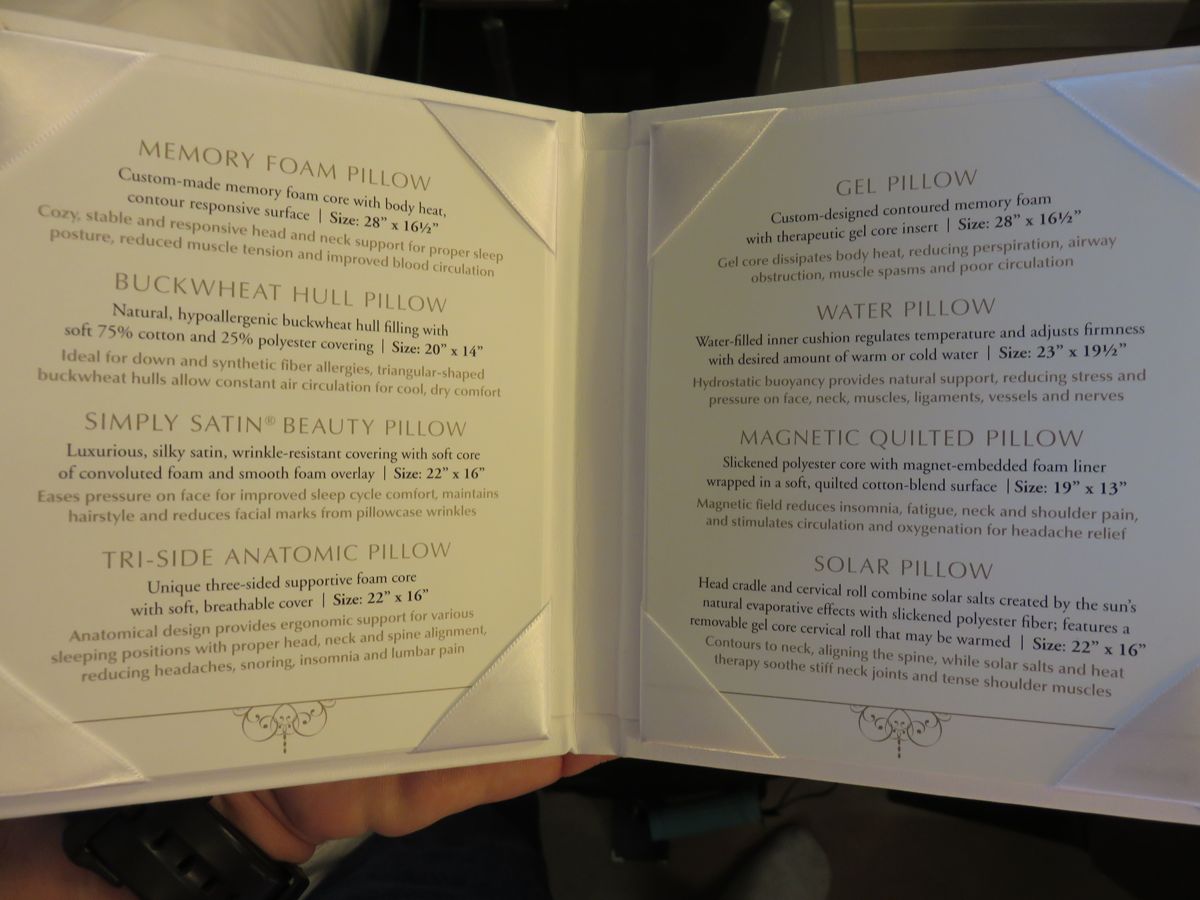 MEMORY FOAM PILLOW
Custom-made memory foam core with body heat,
contour responsive surface | Size: 28” x 16½”
Cozy, stable and responsive head and neck support for proper sleep
posture, reduced muscle tension and improved blood circulation
BUCKWHEAT HULL PILLOW
Natural, hypoallergenic buckwheat hull filling with
soft 75% cotton and 25% polyester covering | Size: 20” x 14”
Ideal for down and synthetic fiber allergies, triangular-shaped
buckwheat hulls allow constant air circulation for cool, dry comfort
SIMPLY SATIN® BEAUTY PILLOW
Luxurious, silky satin, wrinkle-resistant covering with soft core
of convoluted foam and smooth foam overlay | Size: 22” x 16”
Eases pressure on face for improved sleep cycle comfort, maintains
hairstyle and reduces facial marks from pillowcase wrinkles
TRI-SIDE ANATOMIC PILLOW
Unique three-sided supportive foam core
with soft, breathable cover | Size: 22” x 16”
Anatomical design provides ergonomic support for various
sleeping positions with proper head, neck and spine alignment,
reducing headaches, snoring, insomnia and lumbar pain
GEL PILLOW
Custom-designed contoured memory foam
with therapeutic gel core insert | Size: 28” x 16½”
Gel core dissipates body heat, reducing perspiration, airway
obstruction, muscle spasms and poor circulation
WATER PILLOW
Water-filled inner cushion regulates temperature and adjusts firmness
with desired amount of warm or cold water | Size: 23” x 19½”
Hydrostatic buoyancy provides natural support, reducing stress and
pressure on face, neck, muscles, ligaments, vessels and nerves
MAGNETIC QUILTED PILLOW
Slickened polyester core with magnet-embedded foam liner
wrapped in a soft, quilted cotton-blend surface | Size: 19” x 13”
Magnetic field reduces insomnia, fatigue, neck and shoulder pain,
and stimulates circulation and oxygenation for headache relief
SOLAR PILLOW
Head cradle and cervical roll combine solar salts created by the sun’s
natural evaporative effects with slickened polyester fiber; features a
removable gel core cervical roll that may be warmed | Size: 22” x 16”
Contours to neck, aligning the spine, while solar salts and heat
therapy soothe stiff neck joints and tense shoulder muscles